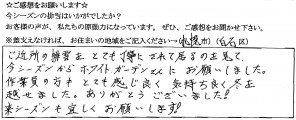 ☆ご感想をお願いします☆
今シーズンの排雪はいかがでしたか?
お客様の声が、私たちの原動力になっています。ぜひ、ご感想をお聞かせ下さい。
※差支えなければ、お住まいの地域をご記入ください→(札幌市)(白石区)
ご近所の排雪をとても丁寧にされて居るのを見て、
今シーズンからホワイトガーデンさんにお願いしました。
作業員の方もとても感じ良く気持ち良く冬を
越せました。ありがとうございました!
来シーズンも宜しくお願いします!